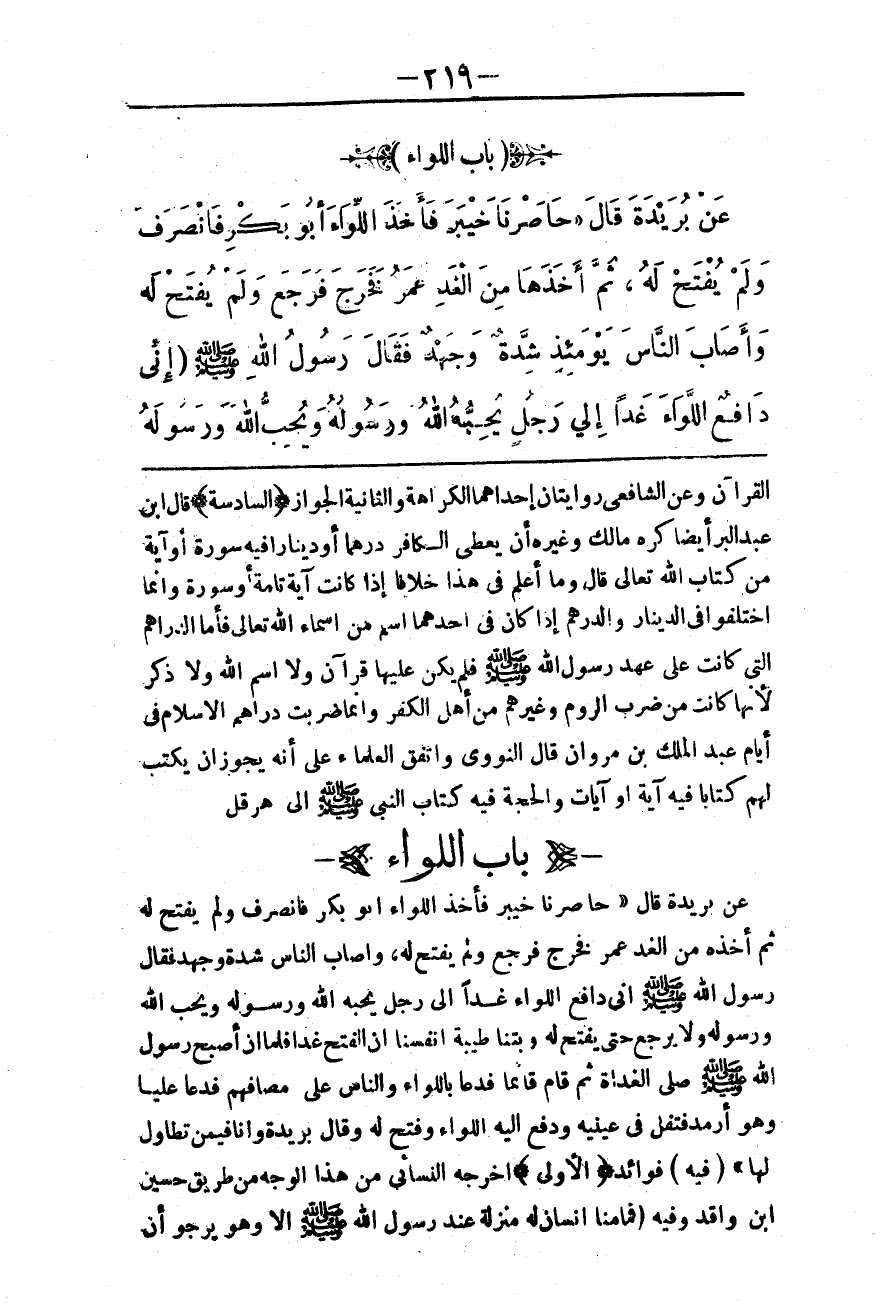 -٢١٩-
(باب اللواء)
عَنْ بُرَيْدَةَ قَالَ «حَاصَرْنَا خَيْبَرَ فَأَخَذَ اللِّوَاءَ أَبُو بَكْرٍ فَانْصَرَفَ
وَلَمْ يُفْتَحْ لَهُ ، ثُمَّ أَخَذَهَا مِنَ الْغَدِ عُمَرُ فَخَرَجَ فَرَجَعَ وَلَمْ يُفْتَحْ لَهُ
وَأَصَابَ النَّاسَ يَوْمَئِذٍ شِدَّةٌ وَجَهْدٌ فَقَالَ رَسُولُ اللهِ ﷺ (إِنِّي
دَافِعٌ اللِّوَاءَ غَداً إِلي رَجُلٍ يُحِبُّهُ اللهُ وَرَسُولُهُ وَيُحِبُّ اللهَ وَرَسُولَهُ
القرآن وعن الشافعى روايتان إحداهما الكراهة والثانية الجواز ﴿السادسة﴾ قال ابن
عبدالبر أيضا كره مالك وغيره أن يعطى الكافر درهما أو دينارا فيه سورة أو آية
من كتاب الله تعالى قال وما أعلم فى هذا خلافا إذا كانت آية تامة أو سورة وانما
اختلفوا فى الدينار والدرهم إذا كان فى احدهما اسم من اسماء الله تعالى فأما الدراهم
التي كانت على عهد رسول الله ﷺ فلم يكن عليها قرآن ولا اسم الله ولا ذكر
لأنها كانت من ضرب الروم وغيرهم من أهل الكفر وانما ضربت دراهم الاسلام فى
أيام عبد الملك بن مروان قال النووى واتفق العلماء على أنه يجوز ان يكتب
لهم كتابا فيه آية او آيات والحجة فيه كتاب النبي ﷺ الى هرقل
- باب اللواء -
عن بريدة قال « حاصرنا خيبر فأخذ اللواء ابو بكر فانصرف ولم يفتح له
ثم أخذه من الغد عمر فخرج فرجع ولم يفتح له، واصاب الناس شدة وجهد فقال
رسول الله ﷺ انى دافع اللواء غداً الى رجل يحبه الله ورسوله ويحب الله
ورسوله ولا يرجع حتى يفتح له وبتنا طيبة انفسنا ان الفتح غدا فلما ان أصبح رسول
الله ﷺ صلى الغداة ثم قام قائما فدعا باللواء والناس على مصافهم فدعا عليا
وهو أرمد فتفل فى عينيه ودفع اليه اللواء وفتح له وقال بريدة وانا فيمن تطاول
لها» (فيه) فوائد ﴿الأولى﴾ اخرجه النسائي من هذا الوجه من طريق حسين
ابن واقد وفيه (فما منا انسان له منزلة عند رسول الله ﷺ الا وهو يرجو أن